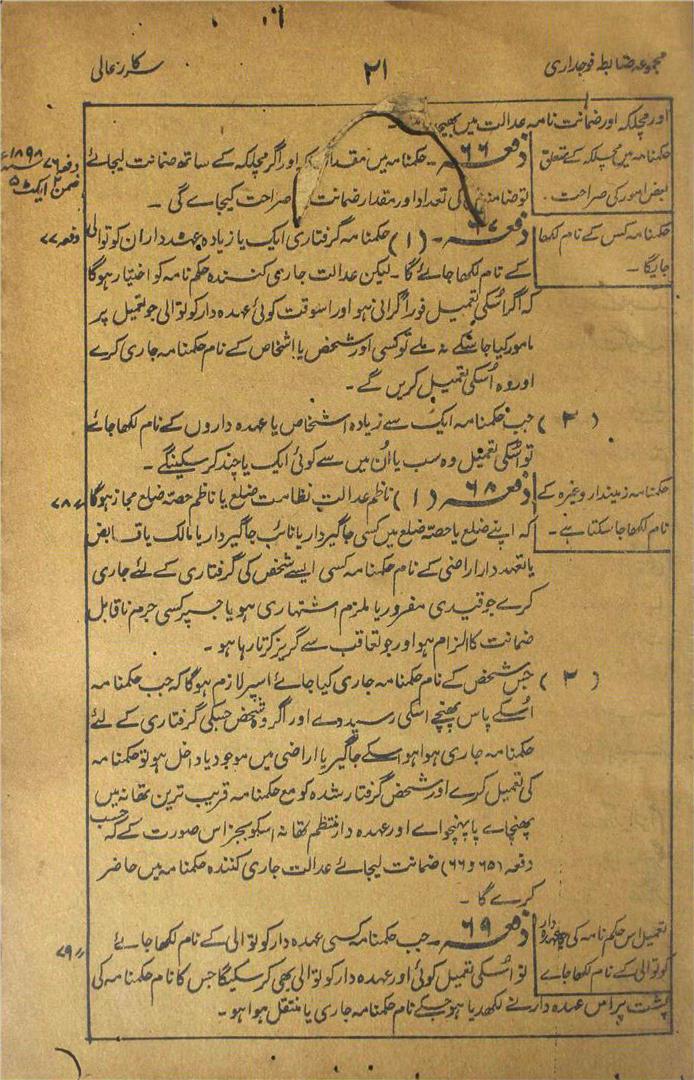 مجموعہ ضابطہ فوجداری
۲۱
سرکار عالی
اور مچلکہ اور ضمانت نامہ عدالت میں
حکمنامہ میں مچلکہ کے متعلق
بعض امور کی صراحت ۔
دفعہ ۶۶ ۔ حکمنامہ میں مقدار اور اگر مچلکہ کے ساتھ ضمانت لیجائے
دفعہ ۷۶ ۱۸۹۸
ضمن ۲ ایکٹ ۵
تو ضامنوں کی تعداد اور مقدار ضمانت صراحت کیجاے گی ۔
حکمنامہ کس کے نام لکھا
جایگا ۔
دفعہ ۶۷ ۔ (۱) حکمنامہ گرفتاری ایک یا زیادہ عہدہ داران کوتوالی
دفعہ ۷۷
کے نام لکھا جائے گا ۔ لیکن عدالت جاری کنندہ حکم نامہ کو اختیار ہوگا
کہ اگر اُسکی تعمیل فوراً کرانی ہو اور اسوقت کوئی عہدہ دار کوتوالی جو تعمیل پر
مامور کیا جا سکے نہ ملے تو کسی اور شخص یا اشخاص کے نام حکمنامہ جاری کرے
اور وہ اُسکی تعمیل کریں گے ۔
(۲) جب حکمنامہ ایک سے زیادہ اشخاص یا عہدہ داروں کے نام لکھا جائے
تو اُسکی تعمیل وہ سب یا اُن میں سے کوئی ایک یا چند کر سکینگے ۔
حکمنامہ زمیندار وغیرہ کے
نام لکھا جا سکتا ہے ۔
دفعہ ۶۸ (۱) ناظم عدالت نظامت ضلع یا ناظم حصہ ضلع مجاز ہوگا
〃 ۷۸
کہ اپنے ضلع یا حصہ ضلع میں کسی جاگیردار یا نائب جاگیردار یا مالک یا قابض
یا تعہددار اراضی کے نام حکمنامہ کسی ایسے شخص کی گرفتاری کے لئے جاری
کرے جو قیدی مفرور یا ملزم اشتہاری ہو یا جسپر کسی جرم ناقابل
ضمانت کا الزام ہو اور جو تعاقب سے گریز کرتا رہا ہو ۔
(۲) جس شخص کے نام حکمنامہ جاری کیا جائے اسپر لازم ہوگا کہ جب حکمنامہ
اُسکے پاس پہنچے اسکی رسید دے اور اگر وہ شخص جسکی گرفتاری کے لئے
حکمنامہ جاری ہوا ہو اسکے جاگیر یا اراضی میں موجود یا داخل ہو تو حکمنامہ
کی تعمیل کرے اور شخص گرفتار شدہ کو مع حکمنامہ قریب ترین تھانہ میں
پھنچاے یا پہنچواے اور عہدہ دار منتظم تھانہ اسکو بجز اس صورت کے کہ حسب
دفعہ (۶۵ و ۶۶) ضمانت لیجائے عدالت جاری کنندہ حکمنامہ میں حاضر
کرے گا ۔
تعمیل اس حکم نامہ کی جو عہدہ دار
کوتوالی کے نام لکھا جاے
دفعہ ۶۹ ۔ جب حکمنامہ کسی عہدہ دار کوتوالی کے نام لکھا جائے
〃 ۷۹
تو اُسکی تعمیل کوئی اور عہدہ دار کوتوالی بھی کر سکیگا جس کا نام حکمنامہ کی
پشت پر اس عہدہ دار نے لکھدیا ہو جسکے نام حکمنامہ جاری یا منتقل ہوا ہو ۔